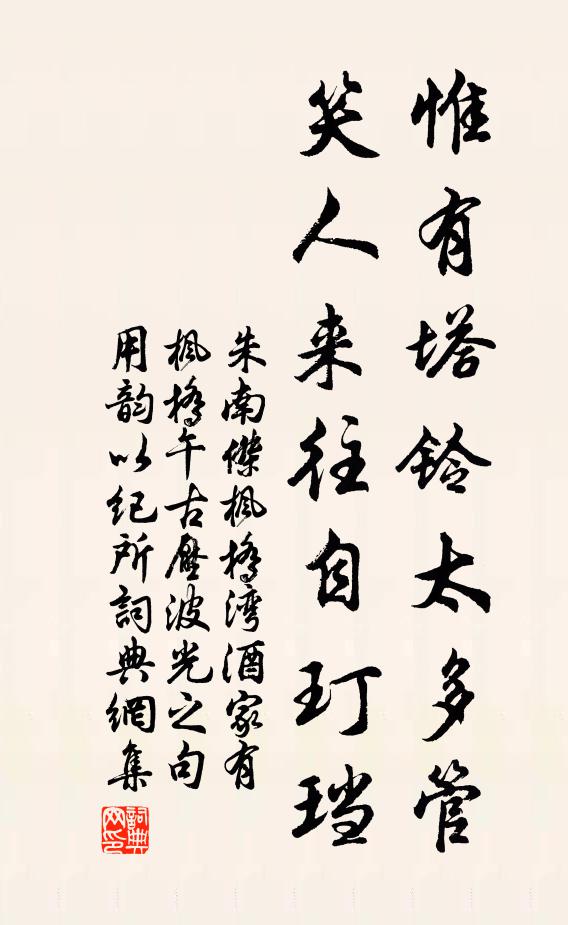 惟有塔鈴太多管
笑人来往自玎珰
朱南傑楓橋灣酒家有
楓橋午古壓波光之句
用韵以紀所詞典網集
詞典網印